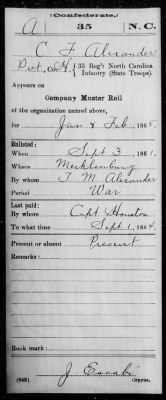 (Confederate.)
A 35 N.C.
C F Alexander
Pvt, Co. H, 35 Reg't North Carolina
Infantry (State Troops).
Appears on
Company Muster Roll
of the organization named above,
for Jan & Feb, 1865.
Enlisted:
When Sept 3, 1861.
Where Mecklenburg
By whom T. M. Alexander
Period War
Last paid:
By whom Capt Houston
To what time Sept 1, 1864.
Present or absent Present
Remarks:
Book mark:
J. Escabi
(642) Copyist.